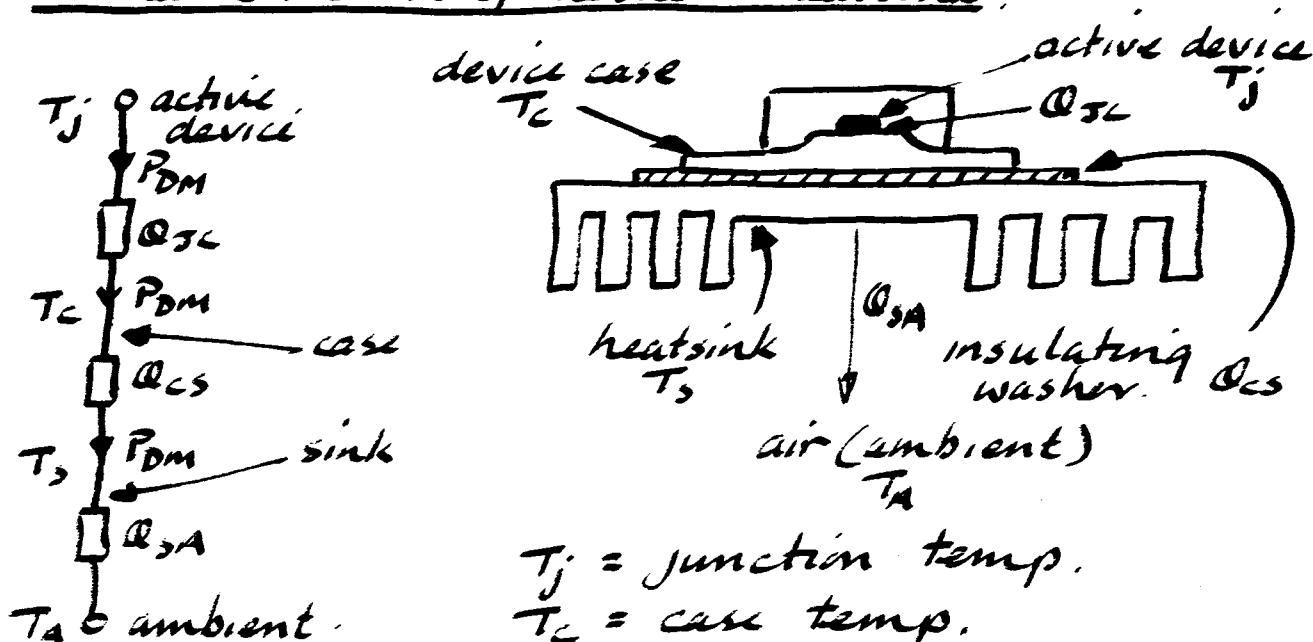 Tj active
device
PDM
QJC
Tc PDM
case
QCS
Ts PDM
sink
QSA
TA ambient.
device case
Tc
active device
Tj
QJC
heatsink
Ts
QSA
insulating
washer. QCS
air (ambient)
TA
Tj = junction temp.
Tc = case temp.